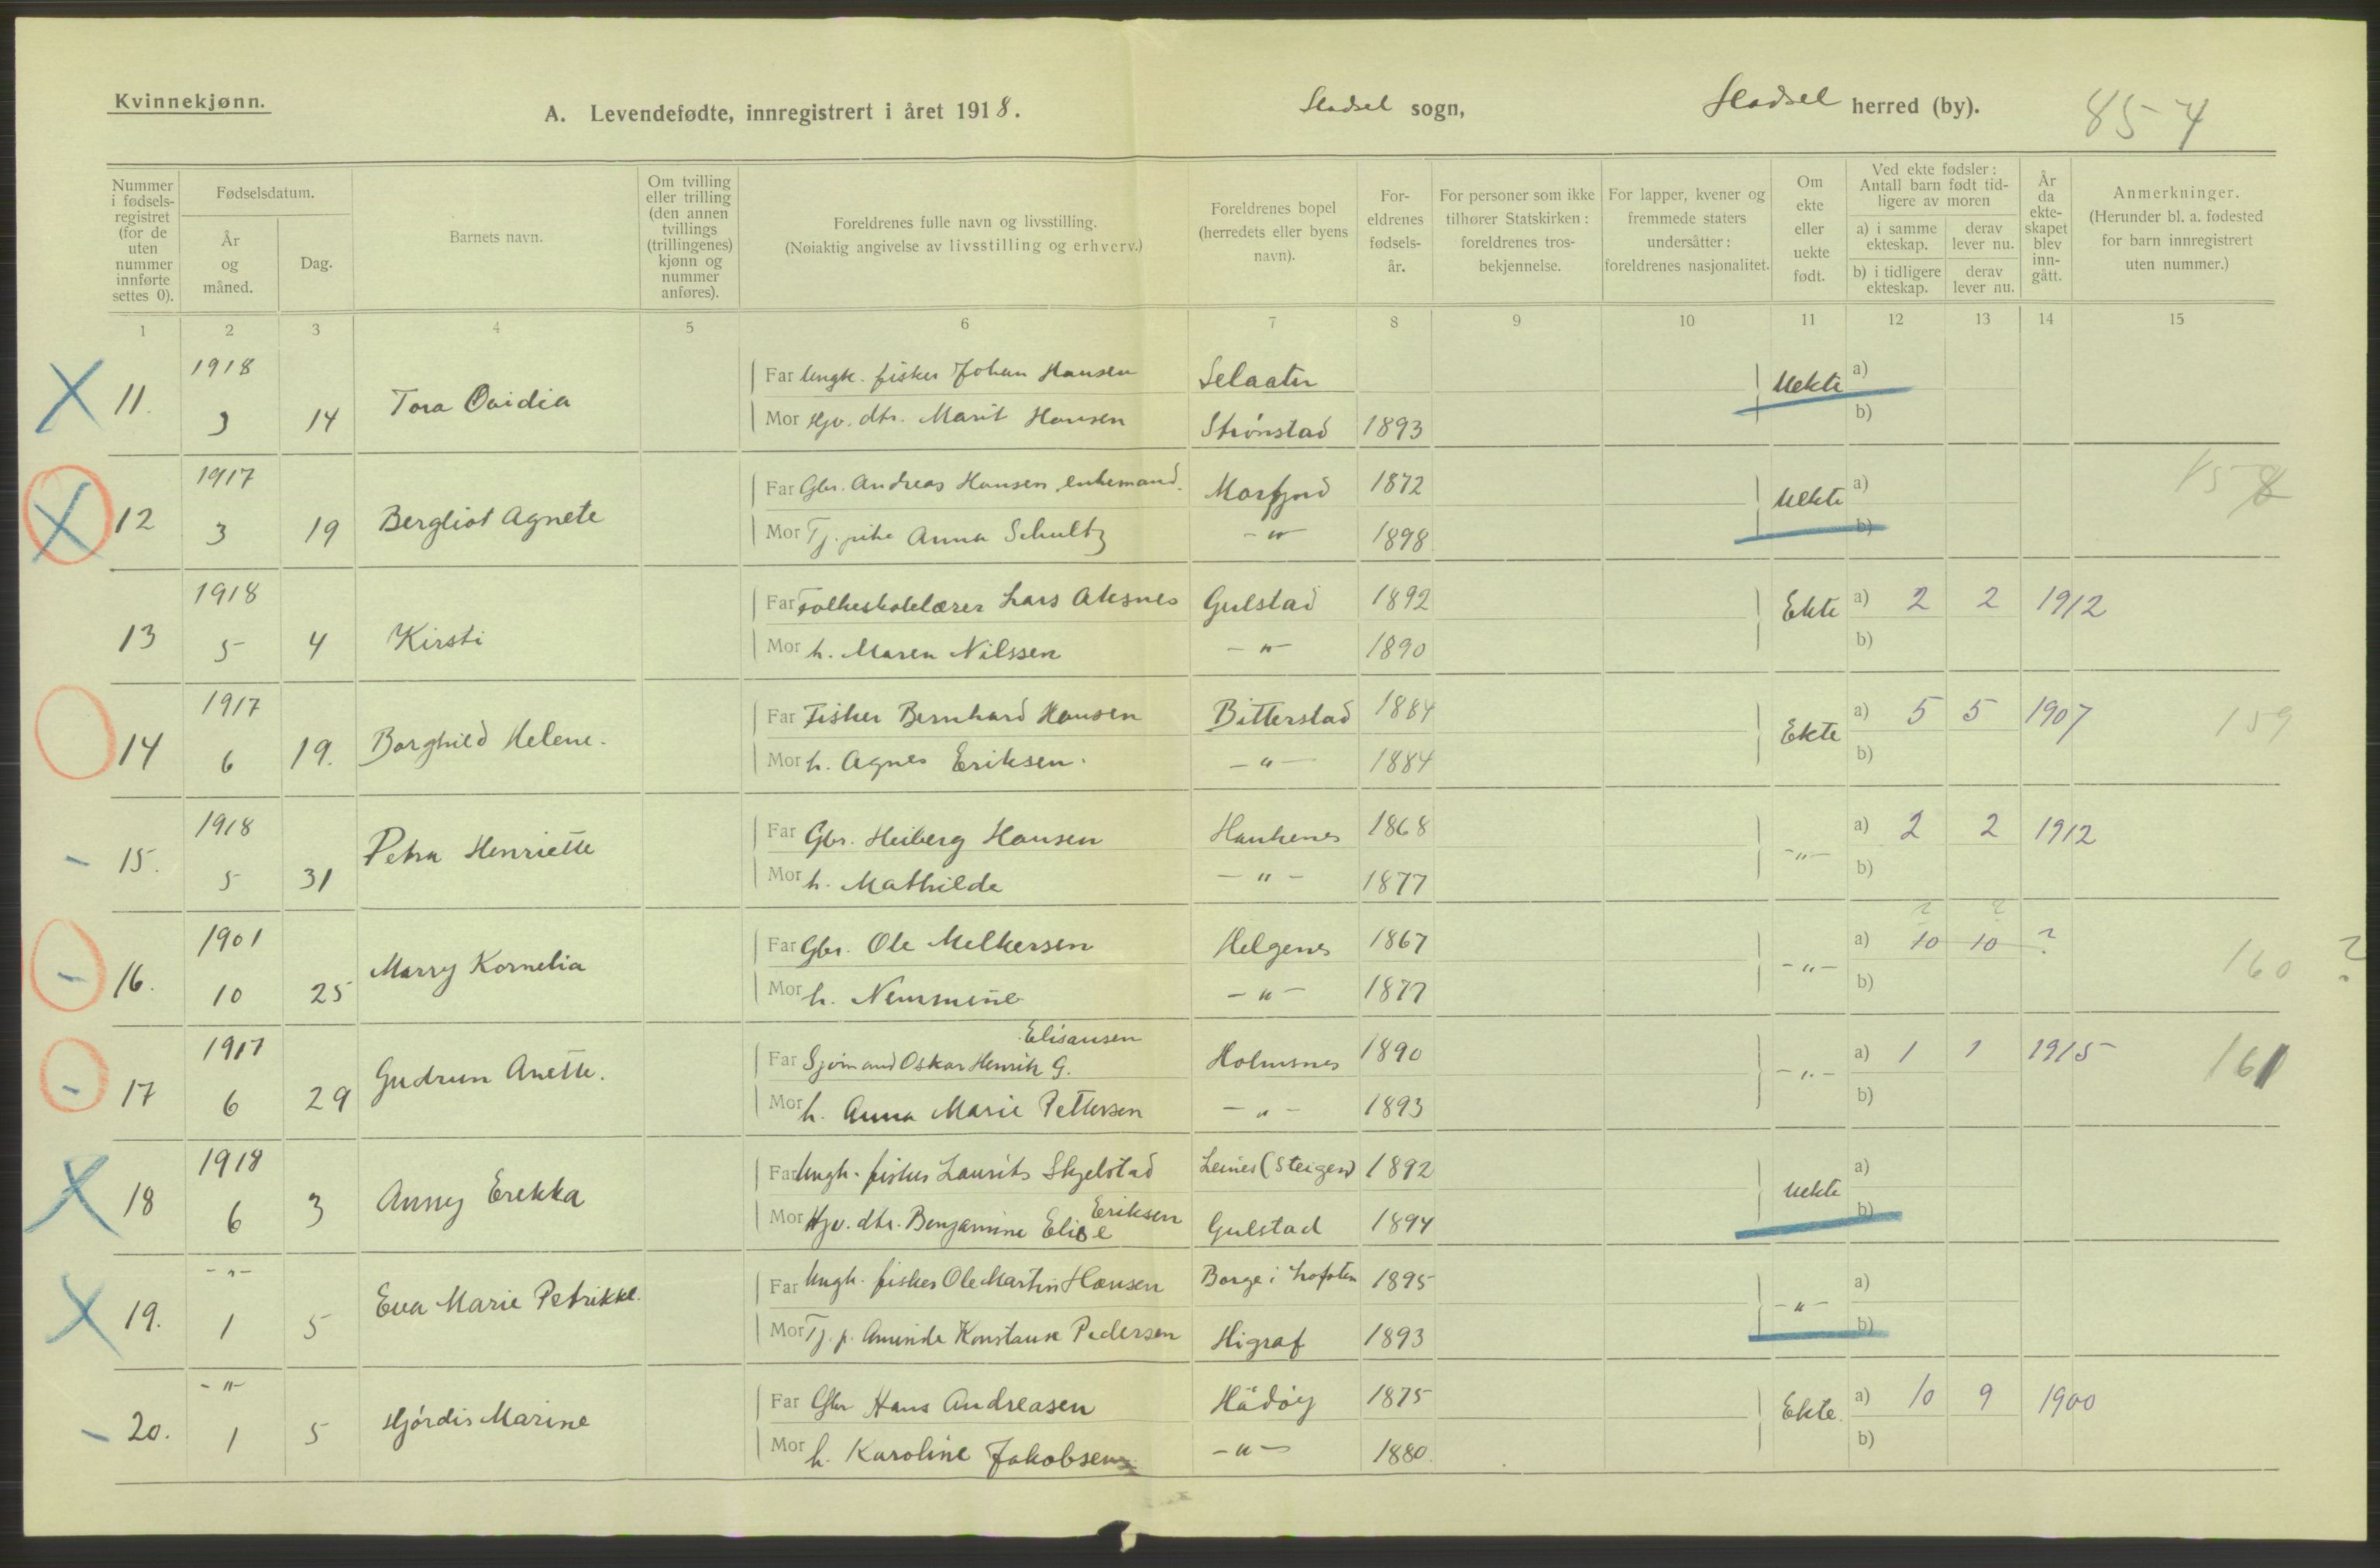 Kvinnekjønn.
A. Levendefødte, innregistrert i året 1918.
Hadsel sogn,
Hadsel herred (by).
85 4
Nummer i fødsels-registret (for de uten nummer innførte settes 0).
Fødselsdatum.
År og måned.
Dag.
Barnets navn.
Om tvilling eller trilling (den annen tvillings (trillingenes) kjønn og nummer anføres).
Foreldrenes fulle navn og livsstilling.
(Nøiaktig angivelse av livsstilling og erhverv.)
Foreldrenes bopel (herredets eller byens navn).
For-eldrenes fødsels-år.
For personer som ikke tilhører Statskirken: foreldrenes tros-bekjennelse.
For lapper, kvener og fremmede staters undersåtter: foreldrenes nasjonalitet.
Om ekte eller uekte født.
Ved ekte fødsler: Antall barn født tid-ligere av moren
a) i samme ekteskap.
derav lever nu.
b) i tidligere ekteskap.
derav lever nu.
År da ekte-skapet blev inn-gått.
Anmerkninger.
(Herunder bl. a. fødested for barn innregistrert uten nummer.)
1 2 3 4 5 6 7 8 9 10 11 12 13 14 15
11. 1918 3 14 Tora Ovidia
Far Ungk. fisker Johan Hansen Selaater
Mor Hjv. dtr. Marit Hansen Strönstad 1893
Uekte a)
b)
12 1917 3 19 Bergliot Agnete
Far Gbr. Andreas Hansen, enkemand. Morfjord 1872
Mor Tj. pike Anna Schultz -"- 1898
Uekte a)
b)
158
13 1918 5 4 Kirsti
Far Folkeskolelærer Lars Aksnes Gulstad 1892
Mor h. Maren Nilssen -"- 1890
Ekte a) 2 2 1912
b)
14 1917 6 19. Borghild Helene.
Far Fisker Bernhard Hansen Bitterstad 1884
Mor h. Agnes Eriksen. -"- 1884
Ekte a) 5 5 1907
b)
159
- 15. 1918 5 31 Petra Henriette
Far Gbr. Heiberg Hansen Haukenes 1868
Mor h. Mathilde -"- 1877
-"- a) 2 2 1912
b)
- 16. 1901 10 25 Marry Kornelia
Far Gbr. Ole Melkersen Helgenes 1867
Mor h. -"- 1877
? ?
-"- a) 10 10 ?
b)
160 ?
- 17 1917 6 29 Gudrun Anette.
Elisausen
Far Sjömand Oskar Henrik G. Holmsnes 1890
Mor h. Anna Marie Pettersen -"- 1893
-"- a) 1 1 1915
b)
161
18 1918 6 3 Anny Erekka
Far Ungk. fisker Laurits Skjelstad Leines (Steigen) 1892
Mor Hjv. dtr. Benjamine Elise Eriksen Gulstad 1894
Uekte a)
b)
19. -"- 1 5 Eva Marie Petrikke.
Far Ungk. fisker Ole Martin Hansen Borge i Lofoten 1895
Mor Tj. p. Konstanse Pedersen Higraf 1893
-"- a)
b)
- 20. -"- 1 5 Hjördis Marine
Far Gbr Hans Andreasen Hadöy 1875
Mor h. Karoline Jakobsen -"- 1880.
Ekte. a) 10 9 1900
b)